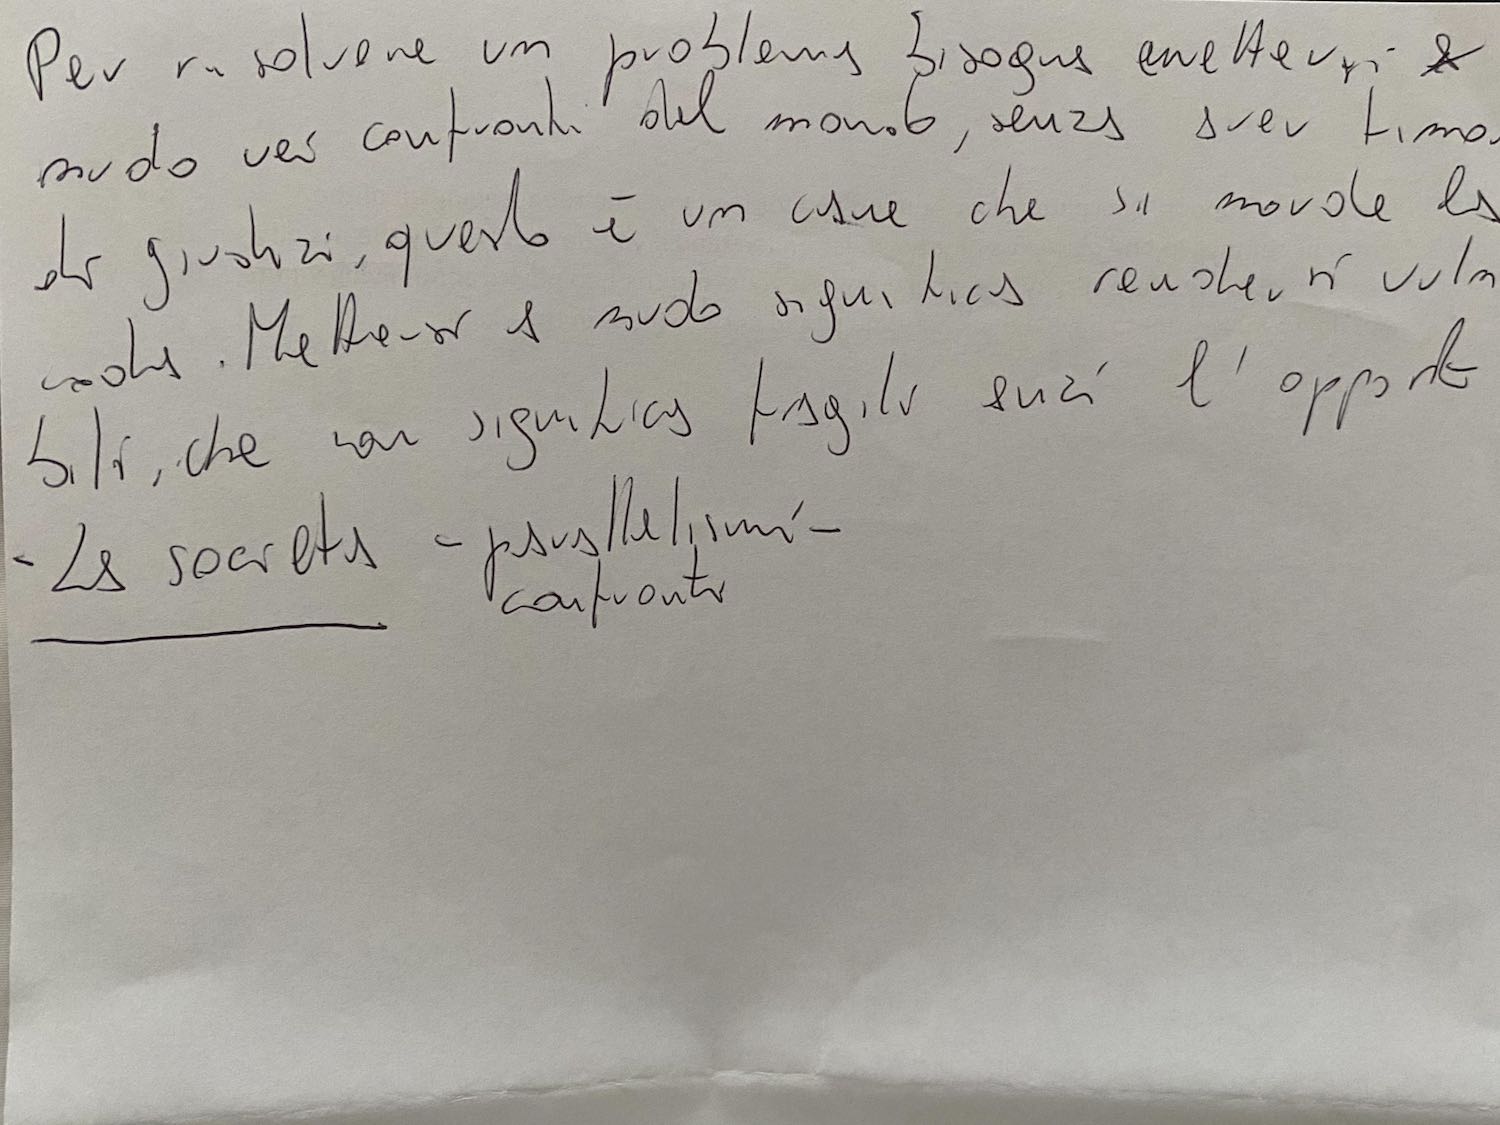 Per risolvere un problema bisogna mettersi a
nudo nei confronti del mondo, senza aver timo
di giudizi, questo è un cane che si morde la
coda. Mettersi a nudo significa rendersi vuln
bili, che non significa fragili anzi l'oppost
- La società - parallelismi -
confronti